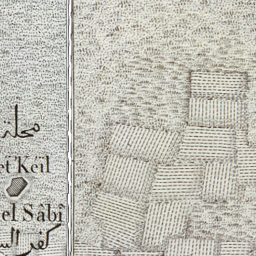 محلة
et Keïl
el Sâbî
كفر الس